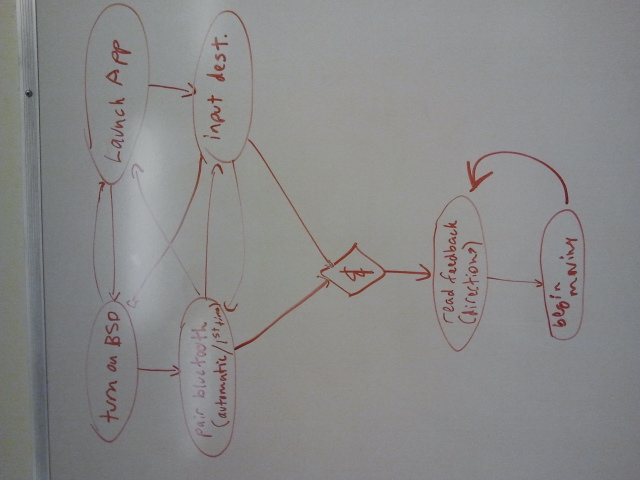 turn on BSD
Launch App
pair bluetooth
(automatic/1st time)
input dest.
&
read feedback
(directions)
begin
moving